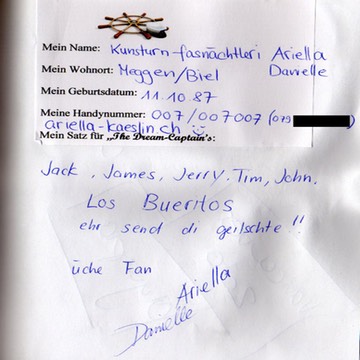 Mein Name: Kunsturn-fasnächtleri Ariella
Mein Wohnort: Meggen/Biel Danielle
Mein Geburtsdatum: 11.10.87
Meine Handynummer: 007/007007 (079
ariella-kaeslin.ch
Mein Satz für „The Dream-Captain's:
Jack, James, Jerry, Tim, John,
Los Bueritos
ehr send di geilschte!!
üche Fan
Ariella
Danielle